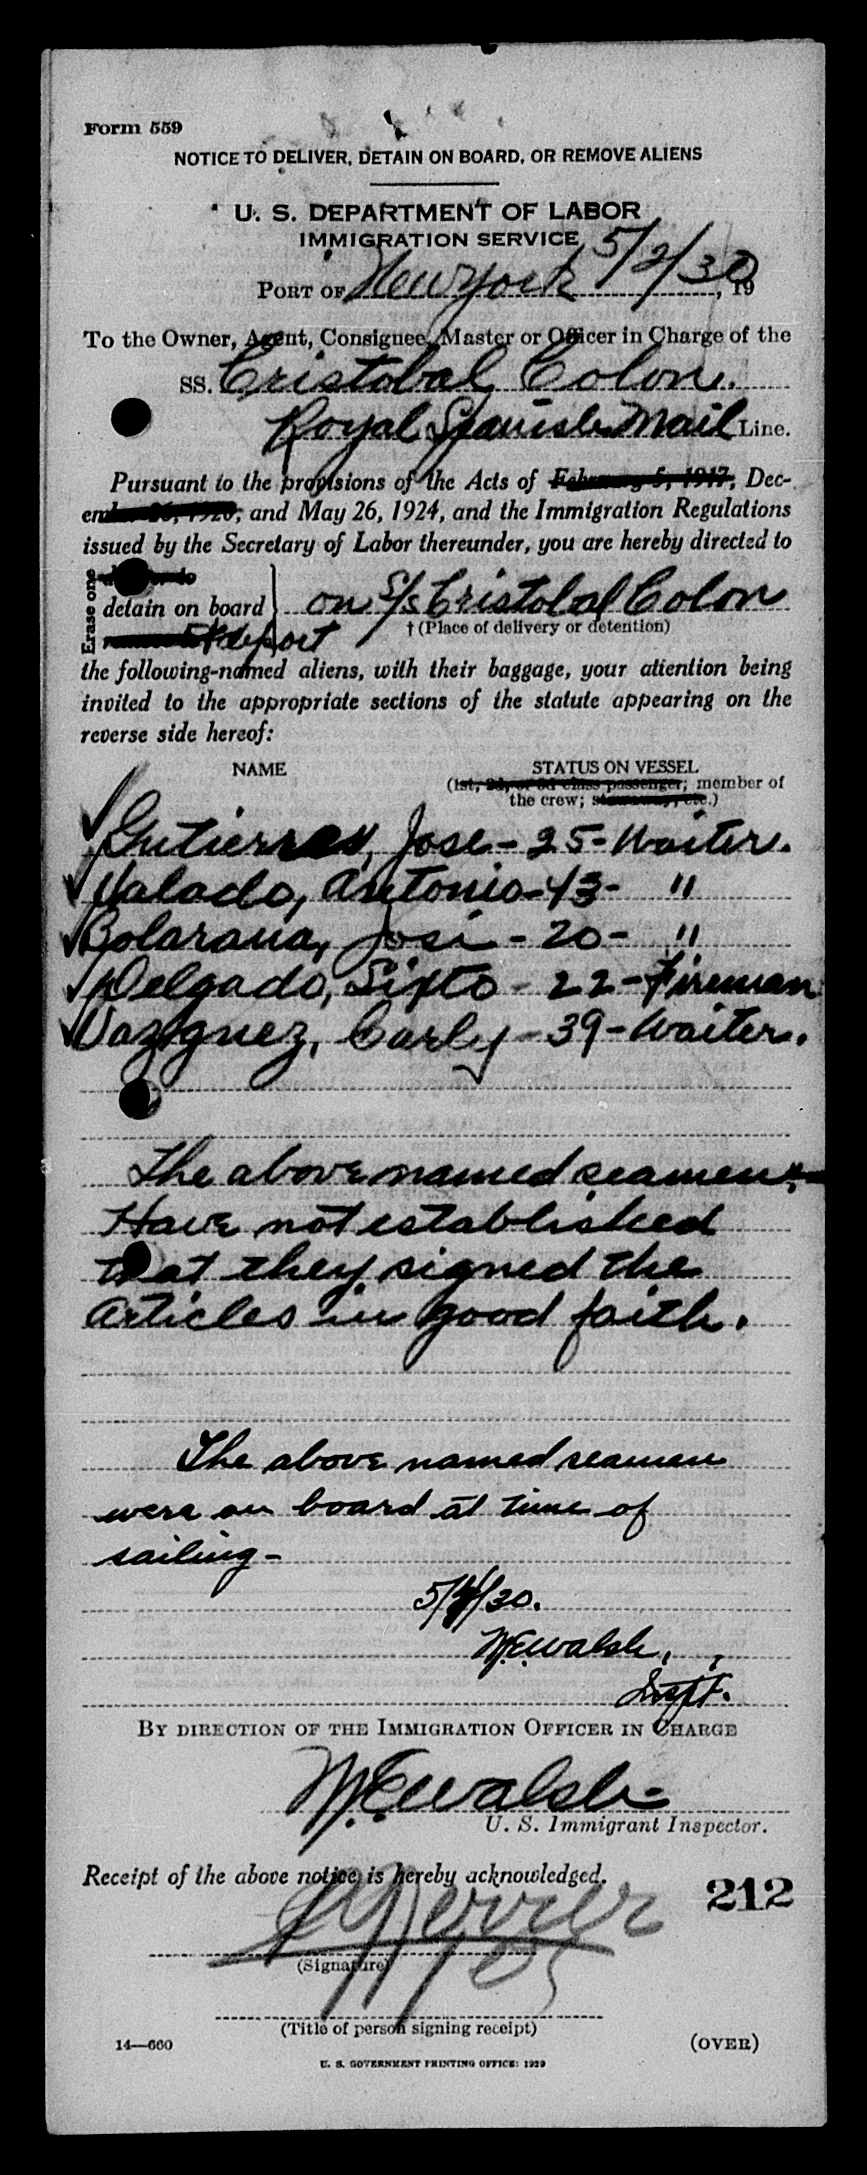 Form 559
NOTICE TO DELIVER, DETAIN ON BOARD, OR REMOVE ALIENS
U. S. DEPARTMENT OF LABOR
IMMIGRATION SERVICE
PORT OF New York 5/2/30, 19
To the Owner, Agent, Consignee, Master or Officer in Charge of the
SS. Cristobal Colon.
Royal Spanish Mail Line.
Pursuant to the provisions of the Acts of February 5, 1917, Dec-
ember 26, 1920, and May 26, 1924, and the Immigration Regulations
issued by the Secretary of Labor thereunder, you are hereby directed to
Erase one
detain on board } on S/S Cristobal Colon
& deport
† (Place of delivery or detention)
the following-named aliens, with their baggage, your attention being
invited to the appropriate sections of the statute appearing on the
reverse side hereof:
NAME STATUS ON VESSEL
(1st, 2d, or 3d class passenger; member of
the crew; stowaway, etc.)
Gutierrez, Jose - 25 - Waiter.
Valado, Antonio - 43 - "
Bolarana, Jose - 20 - "
Delgado, Sixto - 22 - Fireman
Vazquez, Carly - 39 - Waiter.
The above named seamen
Have not established
that they signed the
articles in good faith.
The above named seamen
were on board at time of
sailing -
5/4/30.
W.E. Walsh,
Inspt.
BY DIRECTION OF THE IMMIGRATION OFFICER IN CHARGE
W.E. Walsh
U. S. Immigrant Inspector.
Receipt of the above notice is hereby acknowledged.
212
(Signature)
(Title of person signing receipt)
14—660 (OVER)
U. S. GOVERNMENT PRINTING OFFICE: 1929